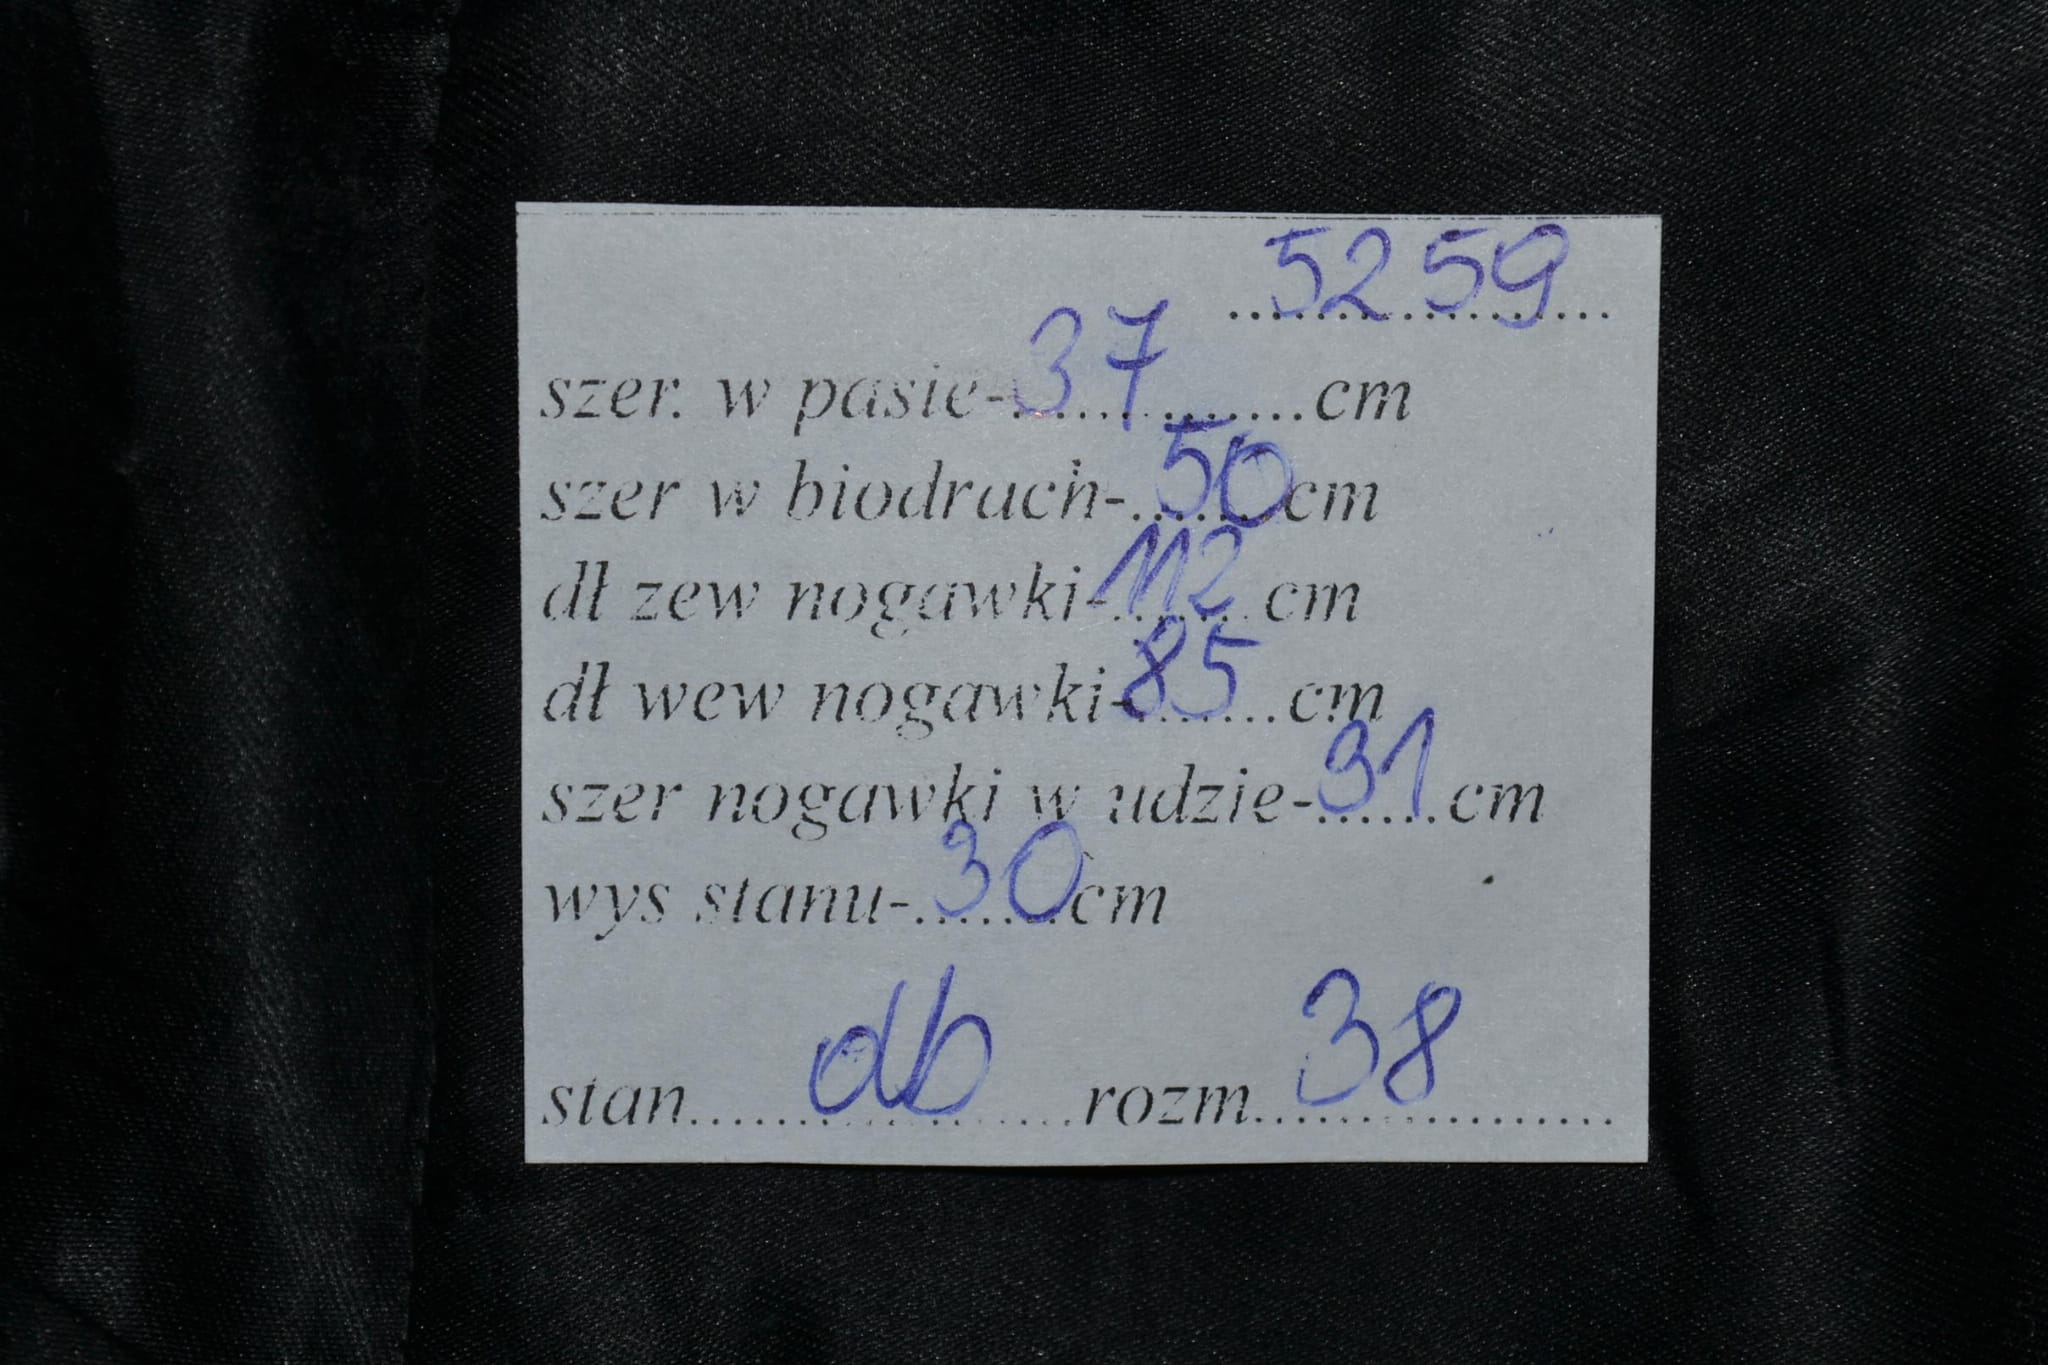 5259
szer. w pasie-37.............cm
szer w biodrach-.50cm
dł zew nogawki-112.......cm
dł wew nogawki-85.......cm
szer nogawki w udzie-31......cm
wys stanu-.30cm
stan........db........rozm....38............